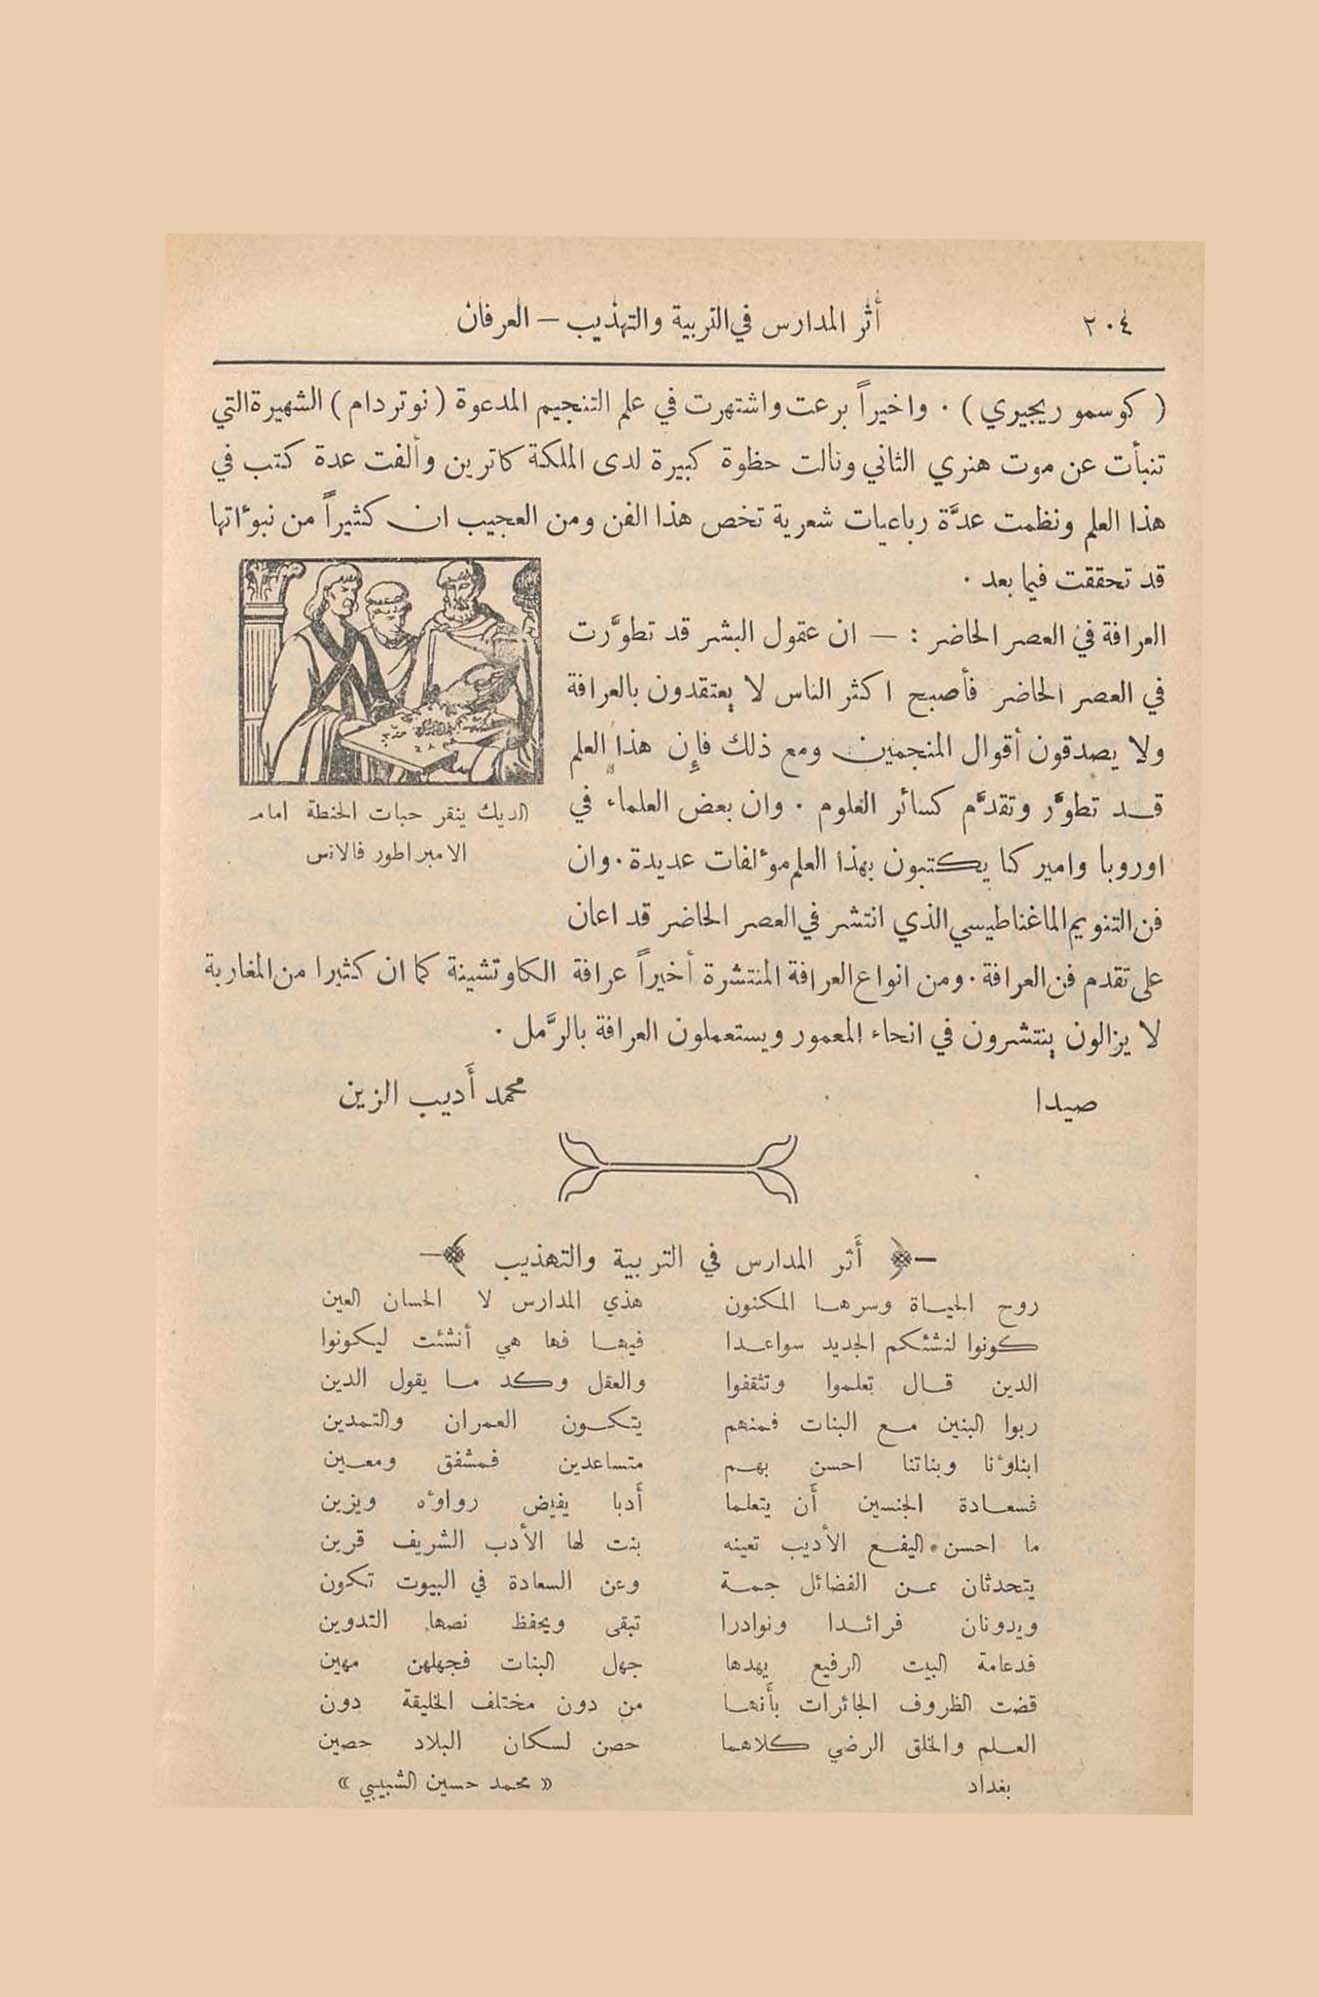 ٢٠٤ أثر المدارس في التربية والتهذيب – العرفان
( كوسمو ريجيري ) . واخيراً برعت واشتهرت في علم التنجيم المدعوة ( نوتردام ) الشهيرة التي
تنبأت عن موت هنري الثاني ونالت حظوة كبيرة لدى الملكة كاترين وألفت عدة كتب في
هذا العلم ونظمت عدَّة رباعيات شعرية تخص هذا الفن ومن العجيب ان كثيراً من نبوءاتها
قد تحققت فيما بعد .
العرافة في العصر الحاضر : – ان عقول البشر قد تطوَّرت
في العصر الحاضر فأصبح اكثر الناس لا يعتقدون بالعرافة
ولا يصدقون أقوال المنجمين ومع ذلك فإن هذا العلم
قد تطوَّر وتقدَّم كسائر العلوم . وان بعض العلماء في
اوروبا وامير كا يكتبون بهذا العلم مؤلفات عديدة . وان
فن التنويم الماغناطيسي الذي انتشر في العصر الحاضر قد اعان
الديك ينقر حبات الحنطة امام
الامبراطور فالانس
على تقدم فن العرافة . ومن انواع العرافة المنتشرة أخيراً عرافة الكاوتشينة كما ان كثيرا من المغاربة
لا يزالون ينتشرون في انحاء المعمور ويستعملون العرافة بالرَّمل .
صيدا محمد أديب الزين
أثر المدارس في التربية والتهذيب
روح الحياة وسرها المكنون هذي المدارس لا الحسان العين
كونوا لنشئكم الجديد سواعدا فيها فها هي أنشئت ليكونوا
الدين قال تعلموا وتثقفوا والعقل وكد ما يقول الدين
ربوا البنين مع البنات فمنهم يتكون العمران والتمدين
ابناؤنا وبناتنا احسن بهم متساعدين فمشفق ومعين
فسعادة الجنسين أن يتعلما أدبا يفيض رواؤه ويزين
ما احسن اليفع الأديب تعينه بنت لها الأدب الشريف قرين
يتحدثان عن الفضائل جمة وعن السعادة في البيوت تكون
ويدونان فرائدا ونوادرا تبقى ويحفظ نصها التدوين
فدعامة البيت الرفيع يهدها جهل البنات فجهلهن مهين
قضت الظروف الجائرات بأنها من دون مختلف الخليقة دون
العلم والخلق الرضي كلاهما حصن لسكان البلاد حصين
بغداد « محمد حسين الشبيبي »